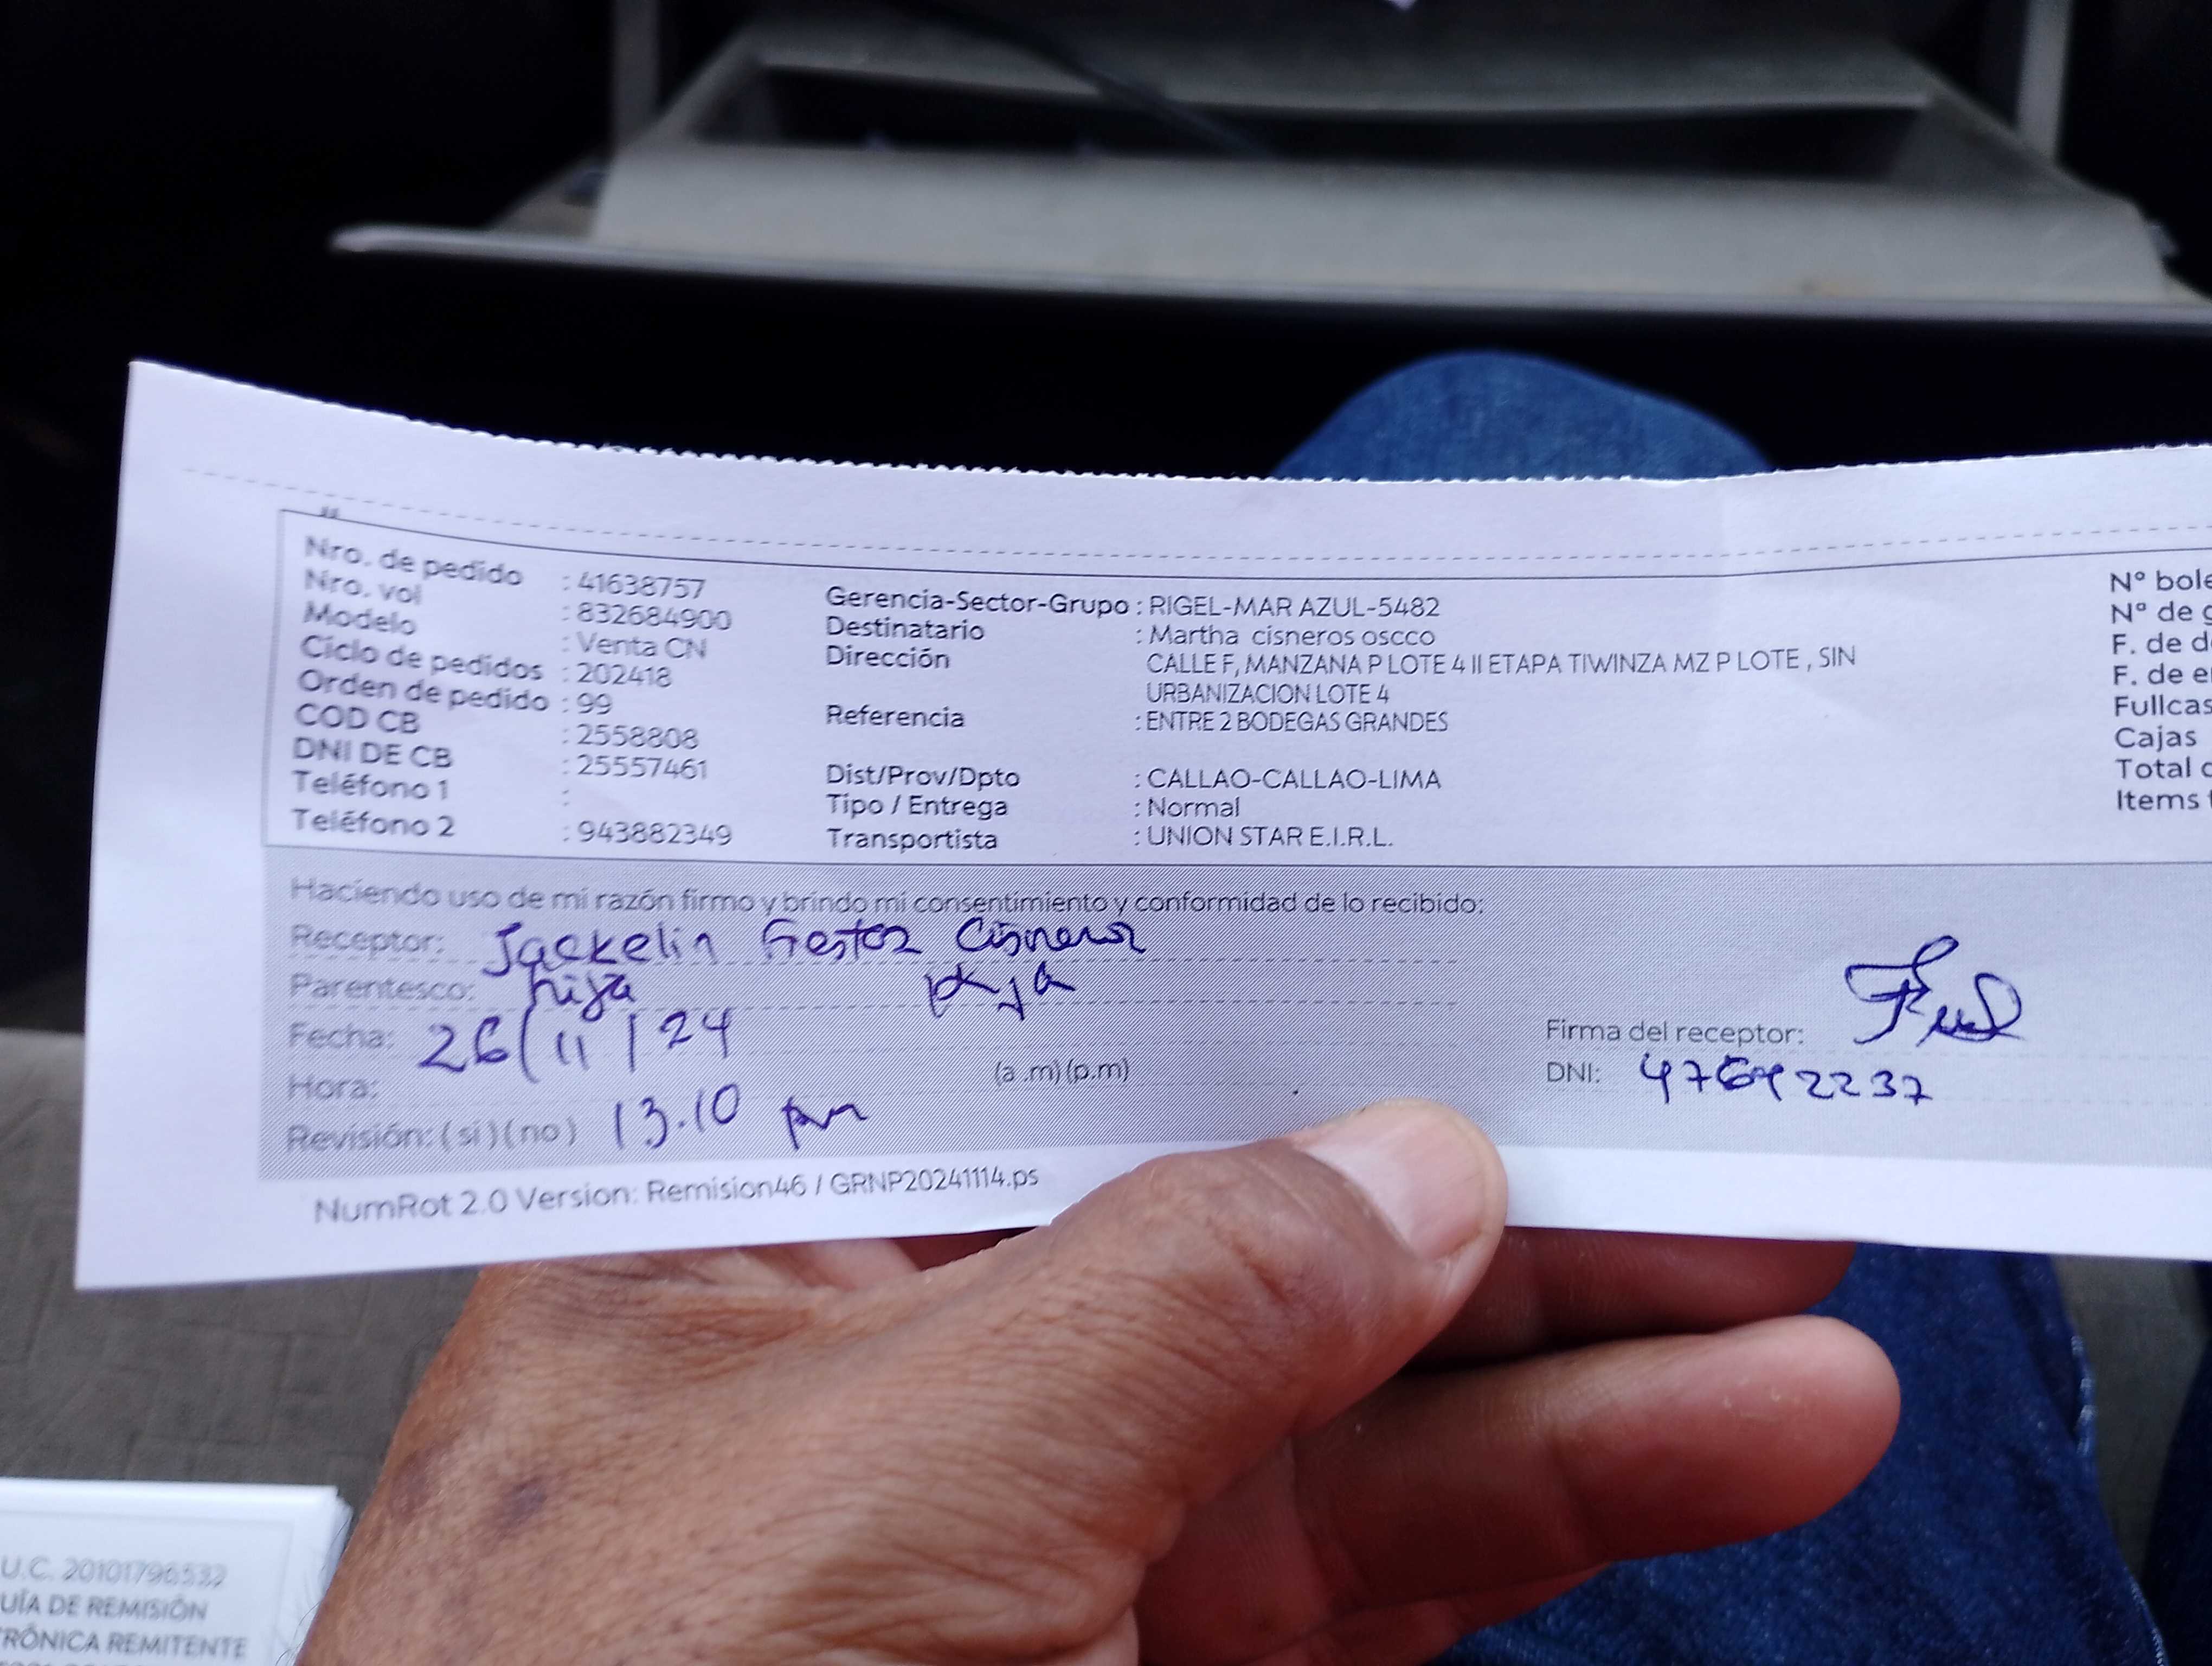 Nro. de pedido : 41638757
Nro. vol : 832684900
Modelo : Venta CN
Ciclo de pedidos : 202418
Orden de pedido : 99
COD CB : 2558808
DNI DE CB : 25557461
Teléfono 1 :
Teléfono 2 : 943882349
Gerencia-Sector-Grupo : RIGEL-MAR AZUL-5482
Destinatario : Martha cisneros oscco
Dirección CALLE F, MANZANA P LOTE 4 II ETAPA TIWINZA MZ P LOTE , SIN
URBANIZACION LOTE 4
Referencia : ENTRE 2 BODEGAS GRANDES
Dist/Prov/Dpto : CALLAO-CALLAO-LIMA
Tipo / Entrega : Normal
Transportista : UNION STAR E.I.R.L.
Nº bole
Nº de g
F. de d
F. de e
Fullcas
Cajas
Total
Items
Haciendo uso de mi razón firmo y brindo mi consentimiento y conformidad de lo recibido:
Receptor: Jackelin Cisneros
Parentesco: hija
Fecha: 26/11/24
Hora: (a .m) (p.m)
Revisión: ( si ) ( no ) 13.10 pm
Firma del receptor:
DNI:
NumRot 2.0 Version: Remision46 / GRNP20241114.ps
U.C. 20101796532
UÍA DE REMISIÓN
TRÓNICA REMITENTE